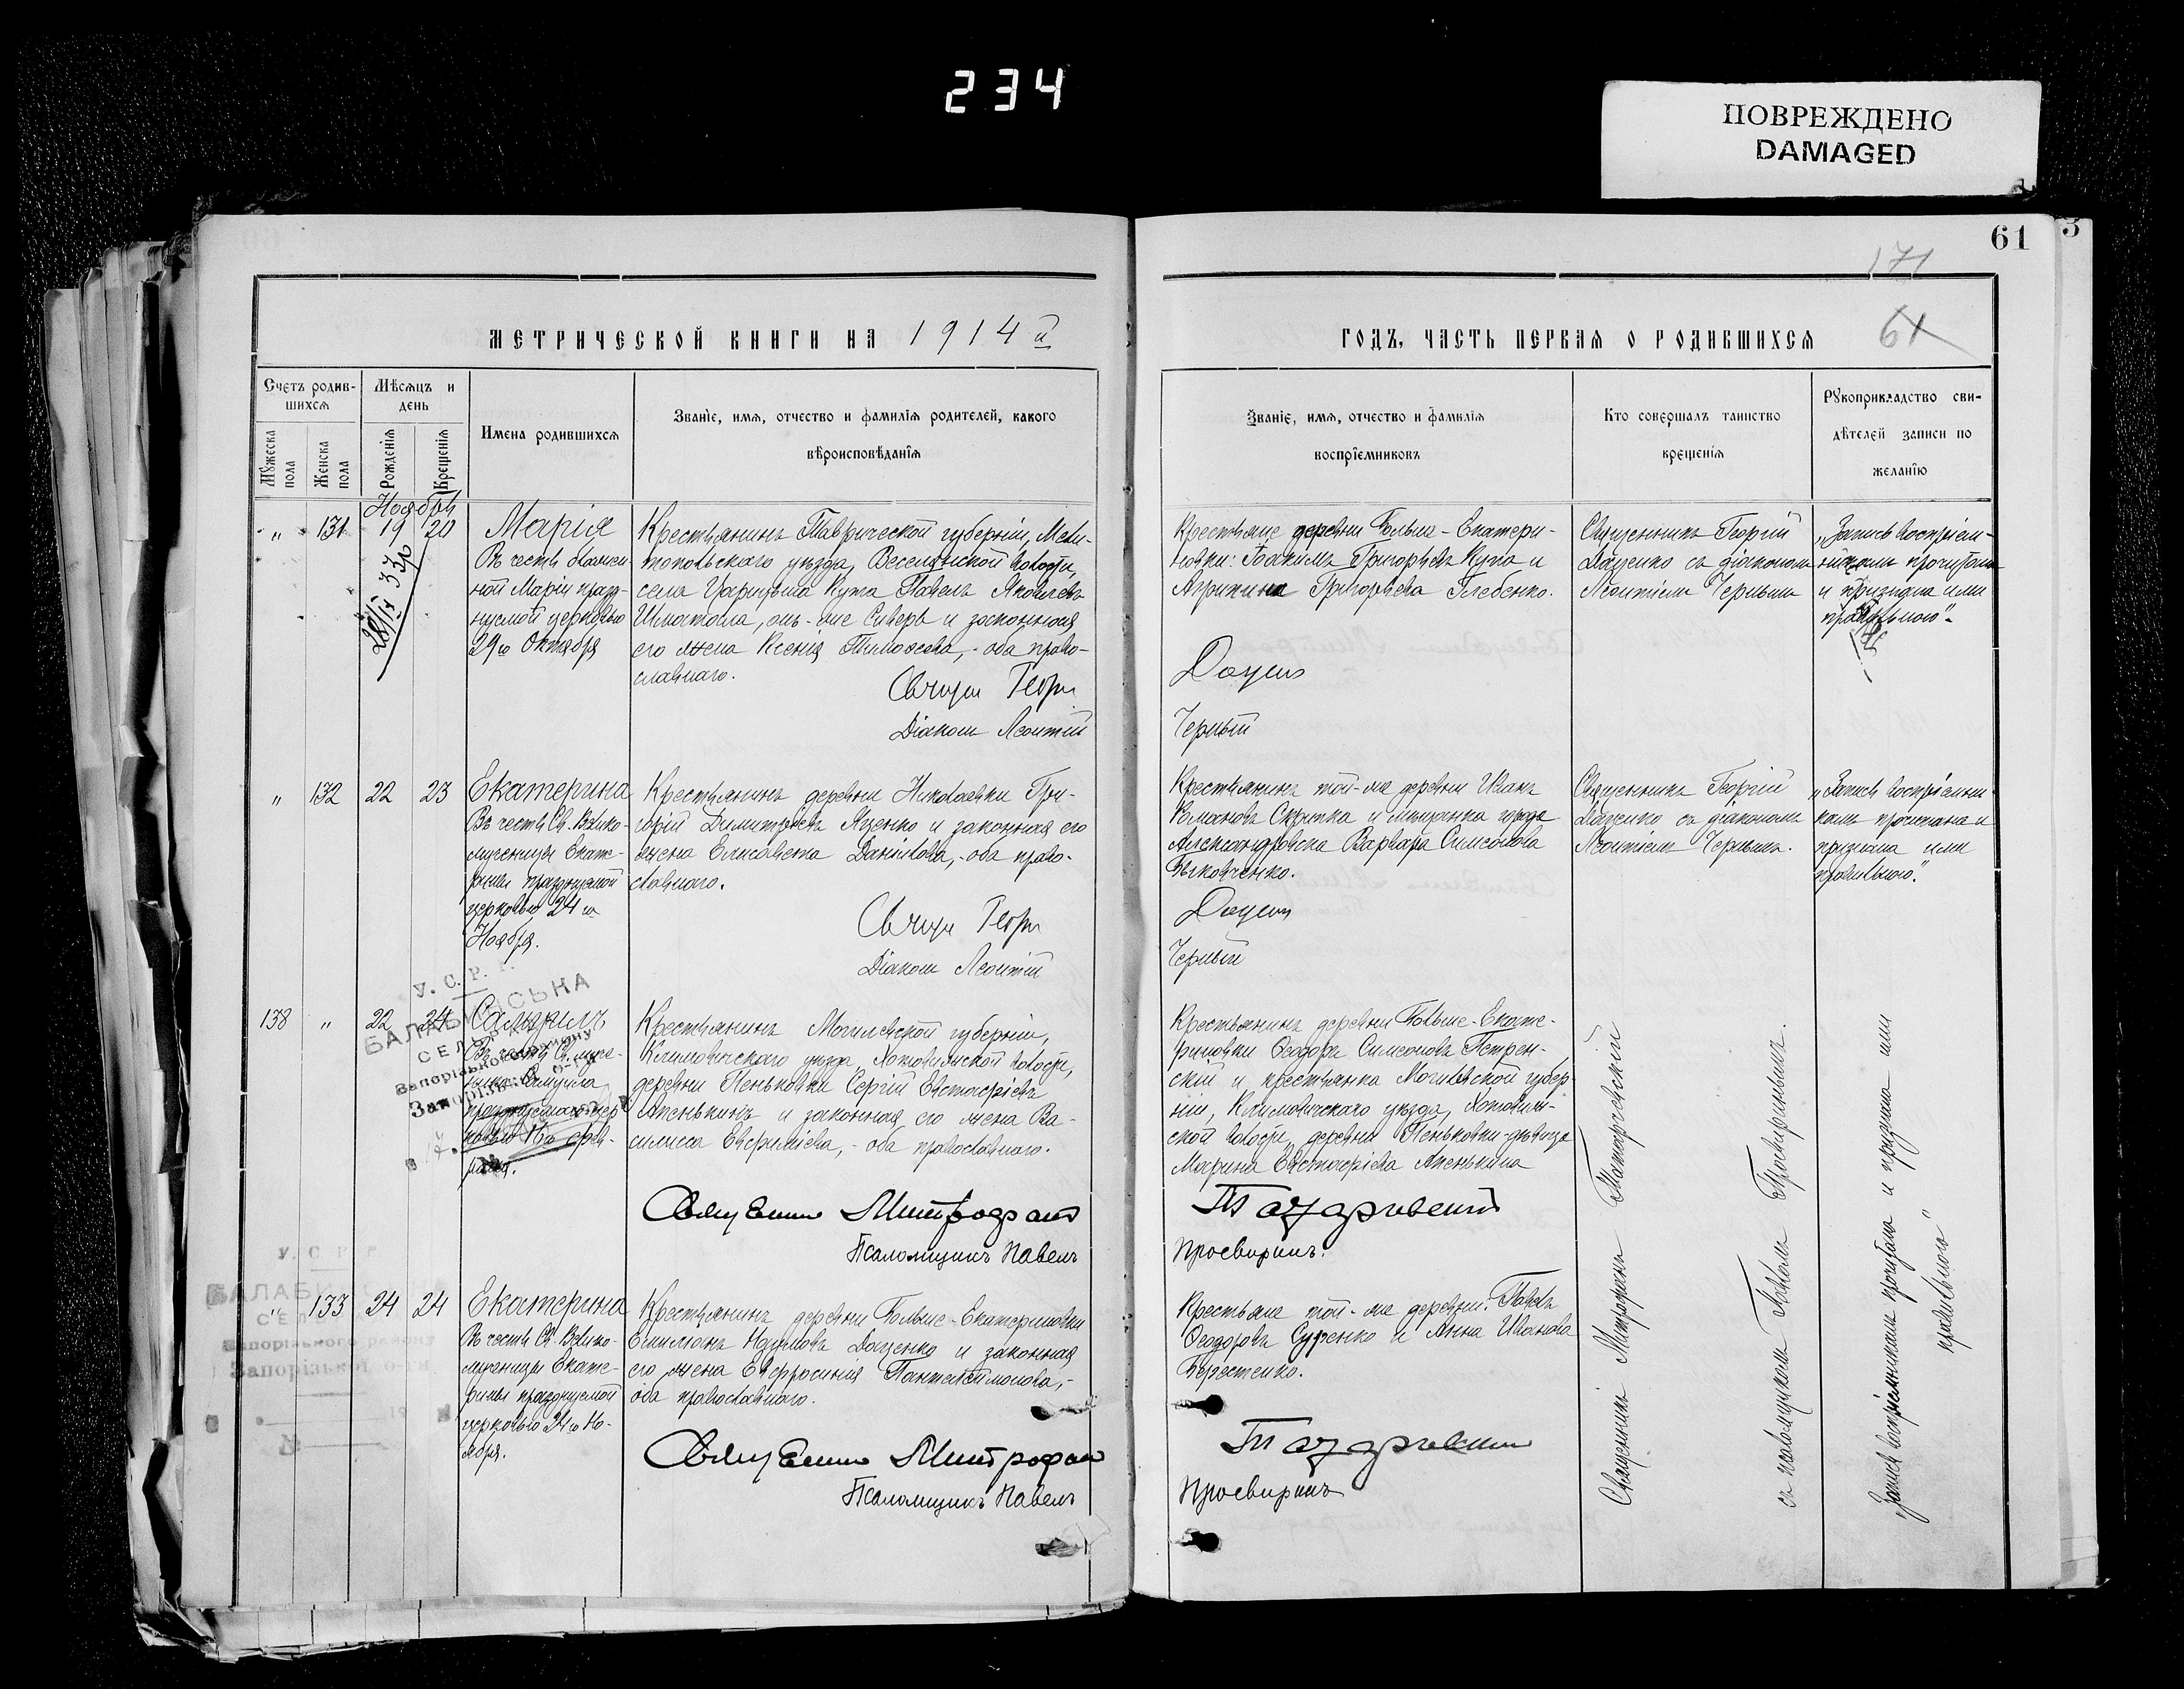 234
ПОВРЕЖДЕНО
DAMAGED
61
3
171
61
МЕТРИЧЕСКОЙ КНИГИ НА 1914 й
ГОДЪ, ЧАСТЬ ПЕРВАЯ О РОДИВШИХСЯ
Счетъ родив-
шихся
Мужеска пола
Женска пола
Мѣсяцъ и
день
Рожденія
Крещенія
Имена родившихся
Званіе, имя, отчество и фамилія родителей, какого
вѣроисповѣданія
Званіе, имя, отчество и фамилія
воспріемниковъ
Кто совершалъ таинство
крещенія
Рукоприкладство сви-
дѣтелей записи по
желанію
Ноябрь
" 131 19 20
Марія
Въ честь
ной Маріи празд-
нуемой церковью
29го Октября
Крестьянинъ Таврической губерніи, Мели-
топольскаго уѣзда, Веселянской волости,
села Царицына Кута Павелъ Яковлевъ
онъ-же Сиверъ и законная
его жена Ксенія Тимоѳеева, - оба право-
славнаго.
Діаконъ Леонтій
Крестьяне деревни Больше-Екатери-
новки: Іоакимъ Григорьевъ Кута и
Агрипина Григорьева Глебенко.
Черный
Священникъ Георгій
Даценко съ діакономъ
Леонтіемъ Чернымъ
"Запись воспріем-
никами прочитана
и признана ими
правильною".
" 132 22 23
Екатерина
Въ честь Св. Велико-
мученицы Екате-
рины празднуемой
церковью 24го
Ноября.
Крестьянинъ деревни Николаевки Гри-
горій Димитріевъ Яценко и законная его
жена Елисавета Даніилова, - оба право-
славнаго.
Діаконъ Леонтій
Крестьянинъ той-же деревни Иванъ
Романовъ Скрипка и мѣщанка города
Александровска Варвара Симеонова
Быковченко.
Черный
Священникъ Георгій
Даценко съ діакономъ
Леонтіемъ Чернымъ.
"Запись воспріемни-
ками прочитана и
признана ими
правильною".
138 " 22 24
Самуилъ
Въ честь Св. муче-
ника Самуила
празднуемаго цер-
ковью 16го фев-
раля.
Крестьянинъ Могилевской губерніи,
Климовичскаго уѣзда, Хотовижской волости,
деревни Пеньковки Сергій Евстафіевъ
Апенькинъ и законная его жена Ва-
силисса Евфиміева, - оба православнаго.
Священникъ Митрофанъ
Псаломщикъ Павелъ
Крестьянинъ деревни Больше-Екате-
риновки Ѳеодоръ Симеоновъ Петрен-
скій и крестьянка Могилевской губер-
ніи, Климовичскаго уѣзда, Хотовиж-
ской волости, деревни Пеньковки-дѣвица
Марина Евстафіева Апенькина
Просвиринъ.
У. С. Р. Р.
СЕЛЬРАДА
Запорізького району
Запорізької о-ги
" 133 24 24
Екатерина
Въ честь Св. Велико-
мученицы Екате-
рины празднуемой
церковью 24го Но-
ября.
Крестьянинъ деревни Больше-Екатериновки
Емиліанъ Наумовъ Даценко и законная
его жена Евфросинія Пантелеймонова, -
оба православнаго.
Священникъ Митрофанъ
Псаломщикъ Павелъ
Крестьяне той-же деревни: Павелъ
Ѳеодоровъ Суренко и Анна Иванова
Берестенко.
Просвиринъ
У. С. Р. Р.
Запорізького району
Запорізької о-ги
Священникъ Митрофанъ Татаревскій
съ псаломщикомъ Павломъ Просвиринымъ.
"Запись воспріемниками прочитана и признана ими
правильною"